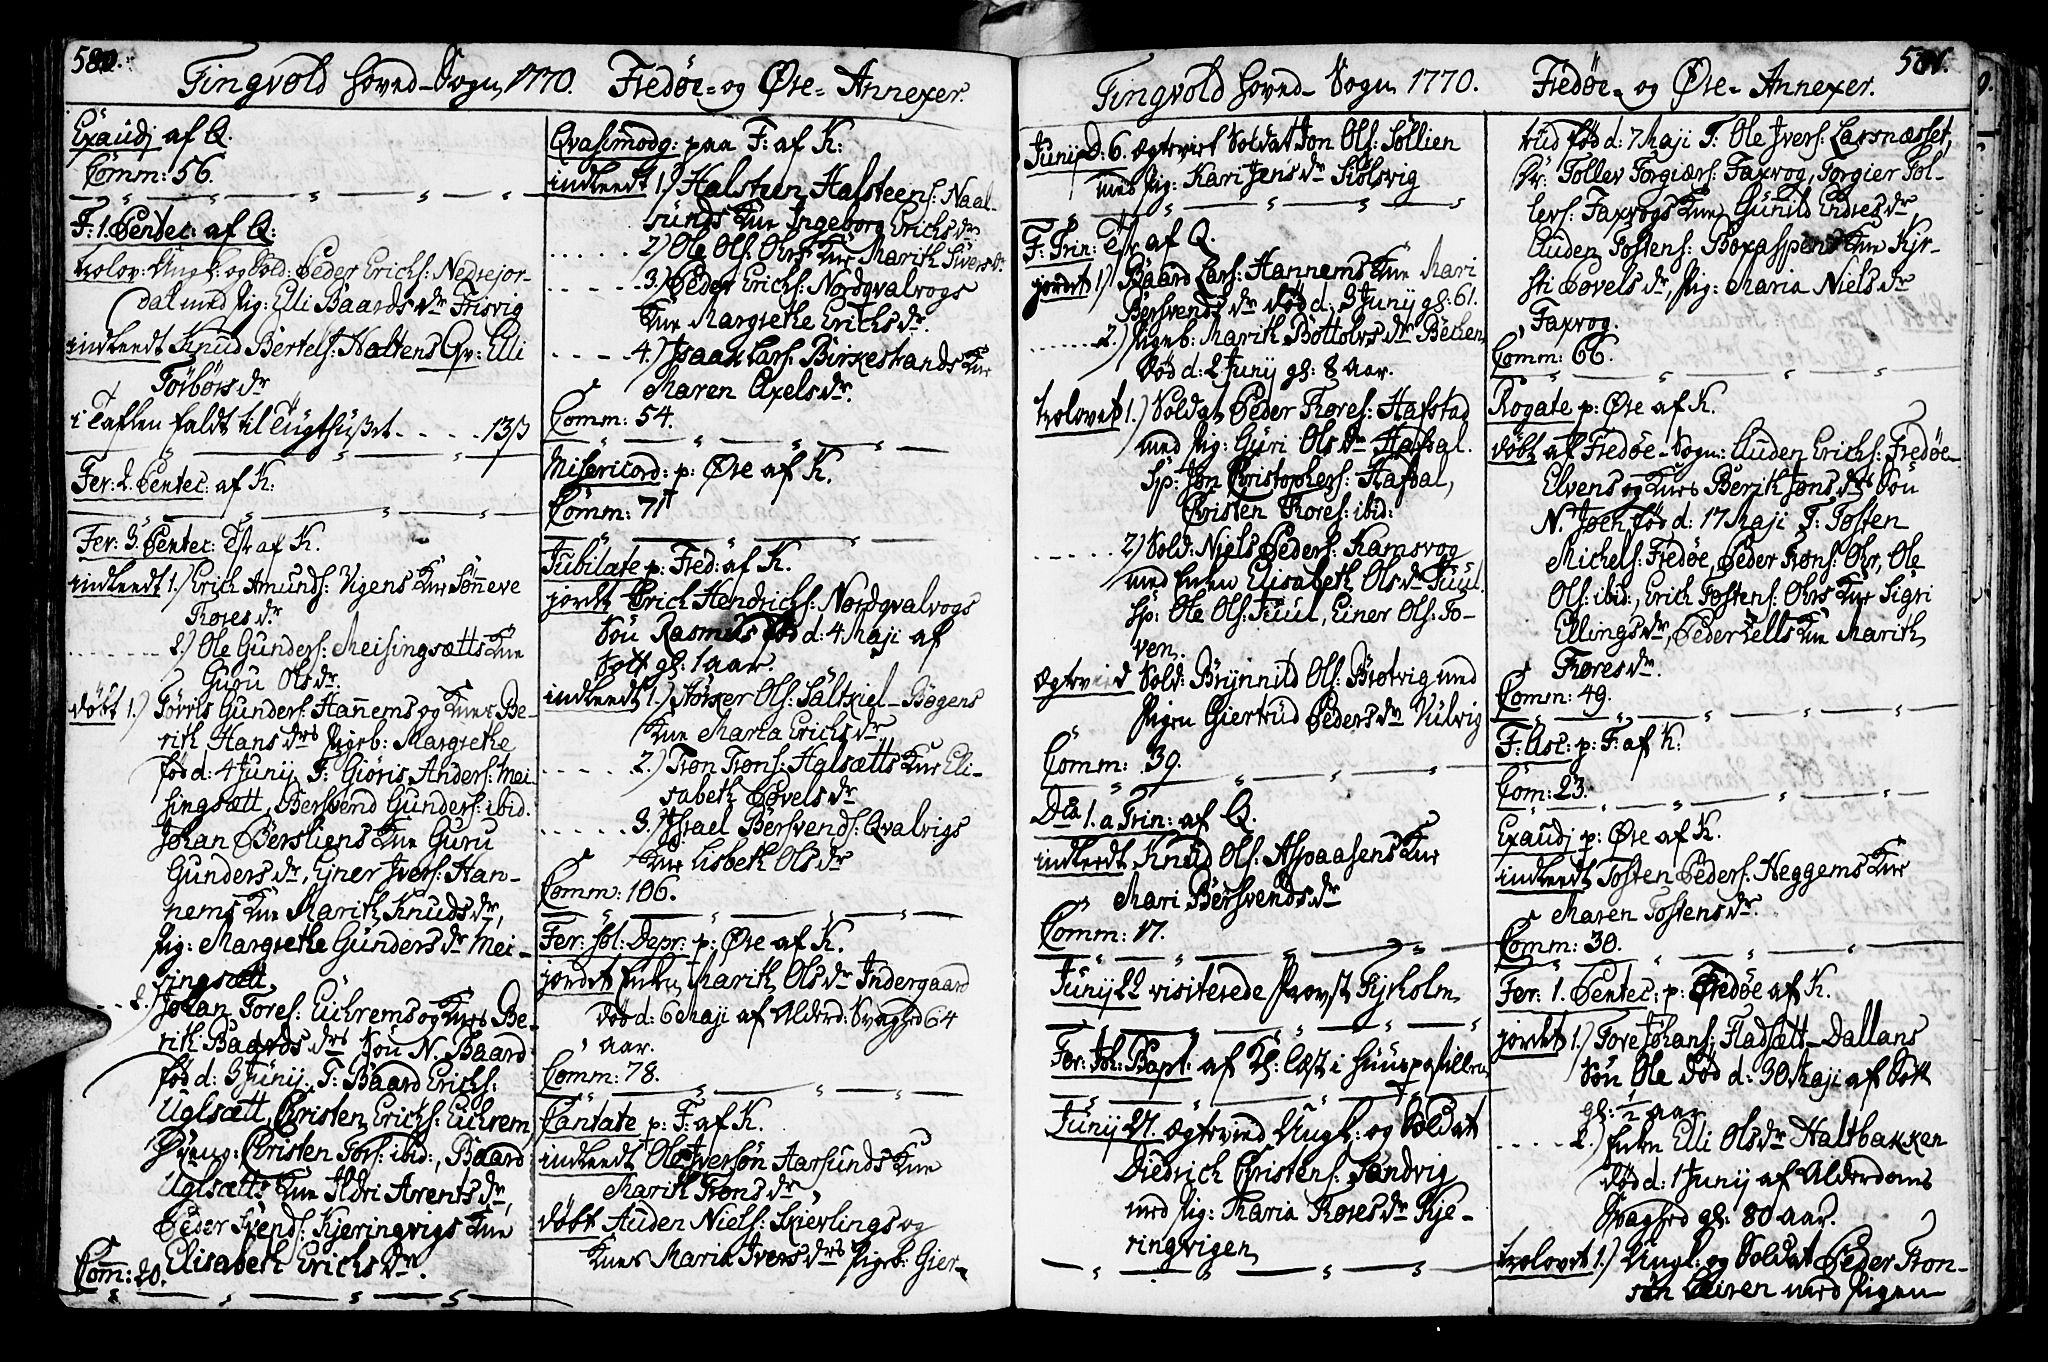 580.
Tingvold hoved-Sogn 1770.
Exaudj af Q.
Comm: 56.
F: 1. Pentec: af Q:
trolov: Ungk: og Sold: Peder Erichs: Nedrejor-
dal med Pig: Elli Baards Dr Frisvig
indleedt Knud Bertels: Haltens Qv: Elli
Torbörs Dr
i Taflen faldt til Tugthuset . . . . 13 β
Fer: 2. Pentec: af K:
Fer: 3. Pentec: af K.
indleedt 1.) Erich Amunds: Vigens Kne Sönneve
Tores Dr
2.) Ole Gunders: Meisingsætts Kne
Guru Ols Dr
döbt 1.) Torris Gunders: Hanems og Knes Be-
rith Hans Drs Pigeb: Margrethe
fød d: 4 Junij F: Giöris Anders: Mei-
singsætt, Bersvend Gunders: ibid:
Johan Börsliens Kne Guru
Gunders Dr, Ejner Ivers: Han-
nems Kne Marith Knuds Dr,
Pig: Margrethe Gunders Dr Mei-
singsætt.
2.) Johan Tores: Eichrems og Knes Be-
rith Baards Drs Sön N. Baard
fød d: 3 Junij. F: Baard Erichs:
Uglsætt, Christen Erichs: Eichrem,
Dreng: Christen Tors: ibid:, Baard
Uglsætts Kne Ildri Arents Dr,
Peder Svends: Kjeringvigs Kne
Elisabeth Erichs Dr.
Com: 20.
Fredöe- og Öre- Annexer.
Qvasimodog: paa F: af K:
indleedt 1.) Halsteen Halsteens: Naal-
sunds Kne Ingeborg Erichs Dr
2.) Ole Ols: Ohrs Kne Marith Sivers Dr.
3.) Peder Erichs: Nordqvalvogs
Kne Margrethe Erichs Dr.
4.) Isaak Lars: Birkestrands Kne
Maren Axels Dr.
Comm: 54.
Misericord: p: Öre af K.
Comm: 71
Jubilate p: Fred: af K.
jordet Erich Hendrichs: Nordqvalvogs
Sön Rasmus død d: 4 Maji af
Sott gl: 1 aar.
indleedt 1.) Störker Ols: Saltkiel-Bögens
Kne Maria Erichs Dr.
2.) Tron Trons: Halsætts Kne Eli-
sabeth Povels Dr
3.) Israel Bersvends: Qvalvigs
Kne Lisbeth Ols Dr
Comm: 106.
Fer: sol: Depr: p: Öre af K.
jordet Enken Marith Ols Dr Indergaard
død d: 6 Maji af Alderd: Svaghed 64
aar.
Comm: 78.
Cantate p: F: af K.
indleedt Ole Iversön Aarsunds Kne
Marith Trons Dr
döbt Auden Niels: Skierlings og
Knes Maria Ivers Drs Pigeb: Gier-
581.
Tingvold hoved-Sogn 1770.
Junij D: 6. Ægteviet Soldat Jon Ols: Söllien
med Pig: Kari Jens Dr Siölsvig
F: Trin: af Q.
jordet 1.) Baard Lars: Hannems Kne Mari
Bersvends Dr død d: 3 Junij gl: 61.
2.) Pigeb: Marith Bottolvs Dr Becken
død d: 2 Junij gl: 8 Aar.
trolovet 1.) Soldat Peder Tores: Hafstad
med Pig: Guri Ols Dr Hafdal.
Sp: Jon Christophers: Hafdal,
Christen Tores: ibid:
2.) Sold: Niels Peders: Kamsvog
med Enken Elisabeth Ols Dr Juul.
Sp: Ole Ols: Juul, Einer Ols: To-
ven.
Ægtevied Sold: Brynnild Ols: Brötvig med
Pigen Giertrud Peders Dr Vulvig
Comm: 39.
Dca 1. a Trin: af Q.
indleedt Knud Ols: Aspaasens Kne
Mari Bersvends Dr
Comm: 17.
Junij 22 visiterede Provst Tyrholm
Fer: Joh: Bapt: af Kl: læst i huuspostillen
Junij 27. Ægtevied Ungk: og Soldat
Diedrich Christens: Sandvig
med Pig: Maria Tores Dr Kje-
ringvigen
Fredöe- og Öre- Annexer.
trud fød d: 7 Maji F: Ole Ivers: Larsnæslet,
Dr: Tollev Torgiers: Faxvog, Torgier Tol-
levs: Faxvogs Kne Gunild Endres Dr,
Auden Tostens: Boxaspens Kne Kjr-
sti Povels Dr, Pig: Maria Niels Dr
Faxvog.
Comm: 66.
Rogate p: Öre af K.
döbt af Fredöe-Sogn: Auden Erichs: Fredöe-
Elvens og Knes Berith Jons Drs Sön
N. Joen fød d: 17 Maji F: Tosten
Michels: Fredöe, Peder Trons: Ohr, Ole
Ols: ibid:, Erich Tostens: Ohrs Kne Sigri
Ellings Dr, Peder Zells Kne Marith
Tores Dr.
Comm: 49.
F: Asc: p: F: af K:
Com: 23.
Exaudj p: Öre af K.
indleedt Tosten Peders: Heggems Kne
Maren Tostens Dr.
Comm: 30.
Fer: 1. Pentec: p: Fredöe af K.
jordet 1.) Tore Johans: Fladsætt-Dallans
Sön Ole død d: 30 Maji af Sott
gl: ½ aar
2.) Enken Elli Ols Dr Haltbakken
død d: 1 Junij af Alderdoms
Svaghed gl: 80 aar.
trolovet 1.) Ungk: og Soldat Peder Tron-
sön Eiren med Pigen